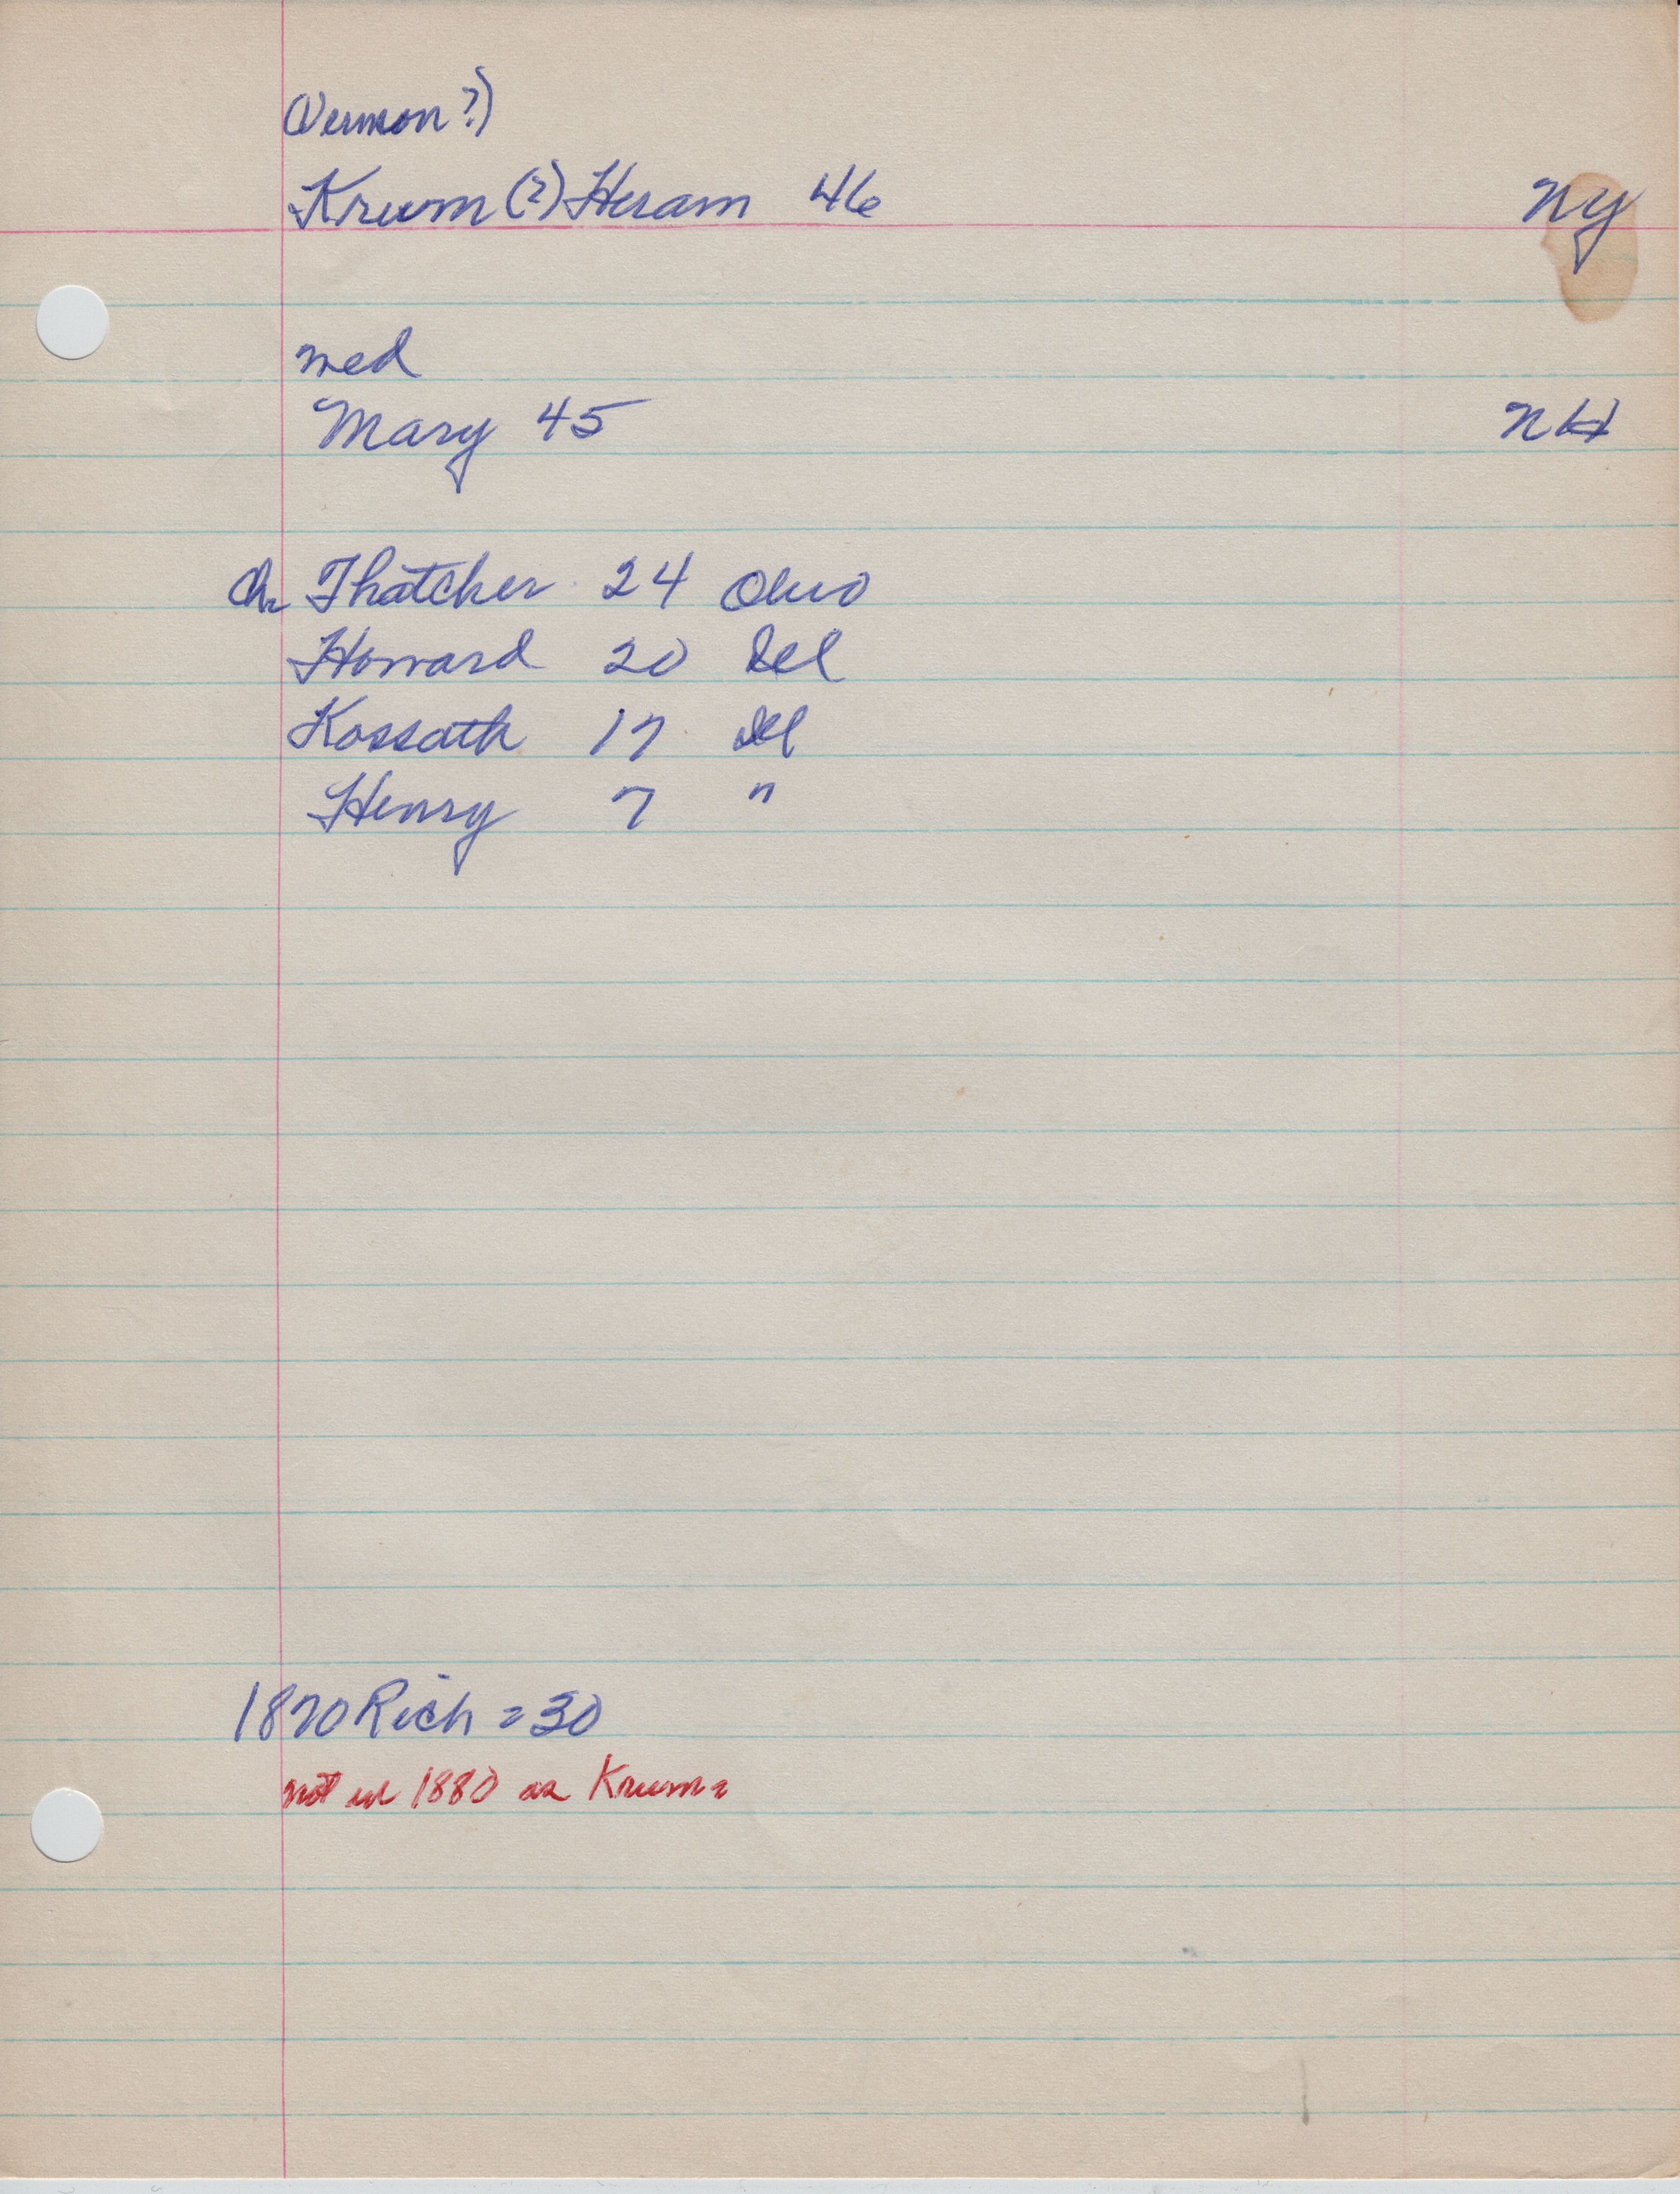 (Vernon?)
Krum (?) Hiram 46 NY
med
Mary 45 NH
ch Thatcher 24 Ohio
Howard 20 Del
Kossath 17 Del
Henry 7 "
1870 Rich = 30
not in 1880 as Krum